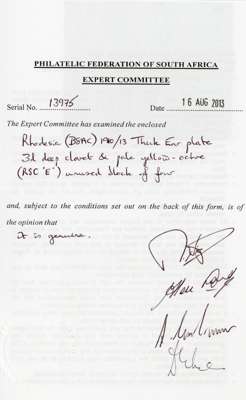 PHILATELIC FEDERATION OF SOUTH AFRICA
EXPERT COMMITTEE
Serial No. 13975 Date 16 AUG 2013
The Expert Committee has examined the enclosed
Rhodesia (BSAC) 1910/13 Thick Ear plate
3d deep claret & pale yellow-ochre
(RSC 'E') unused block of four
and, subject to the conditions set out on the back of this form, is of
the opinion that
It is genuine.